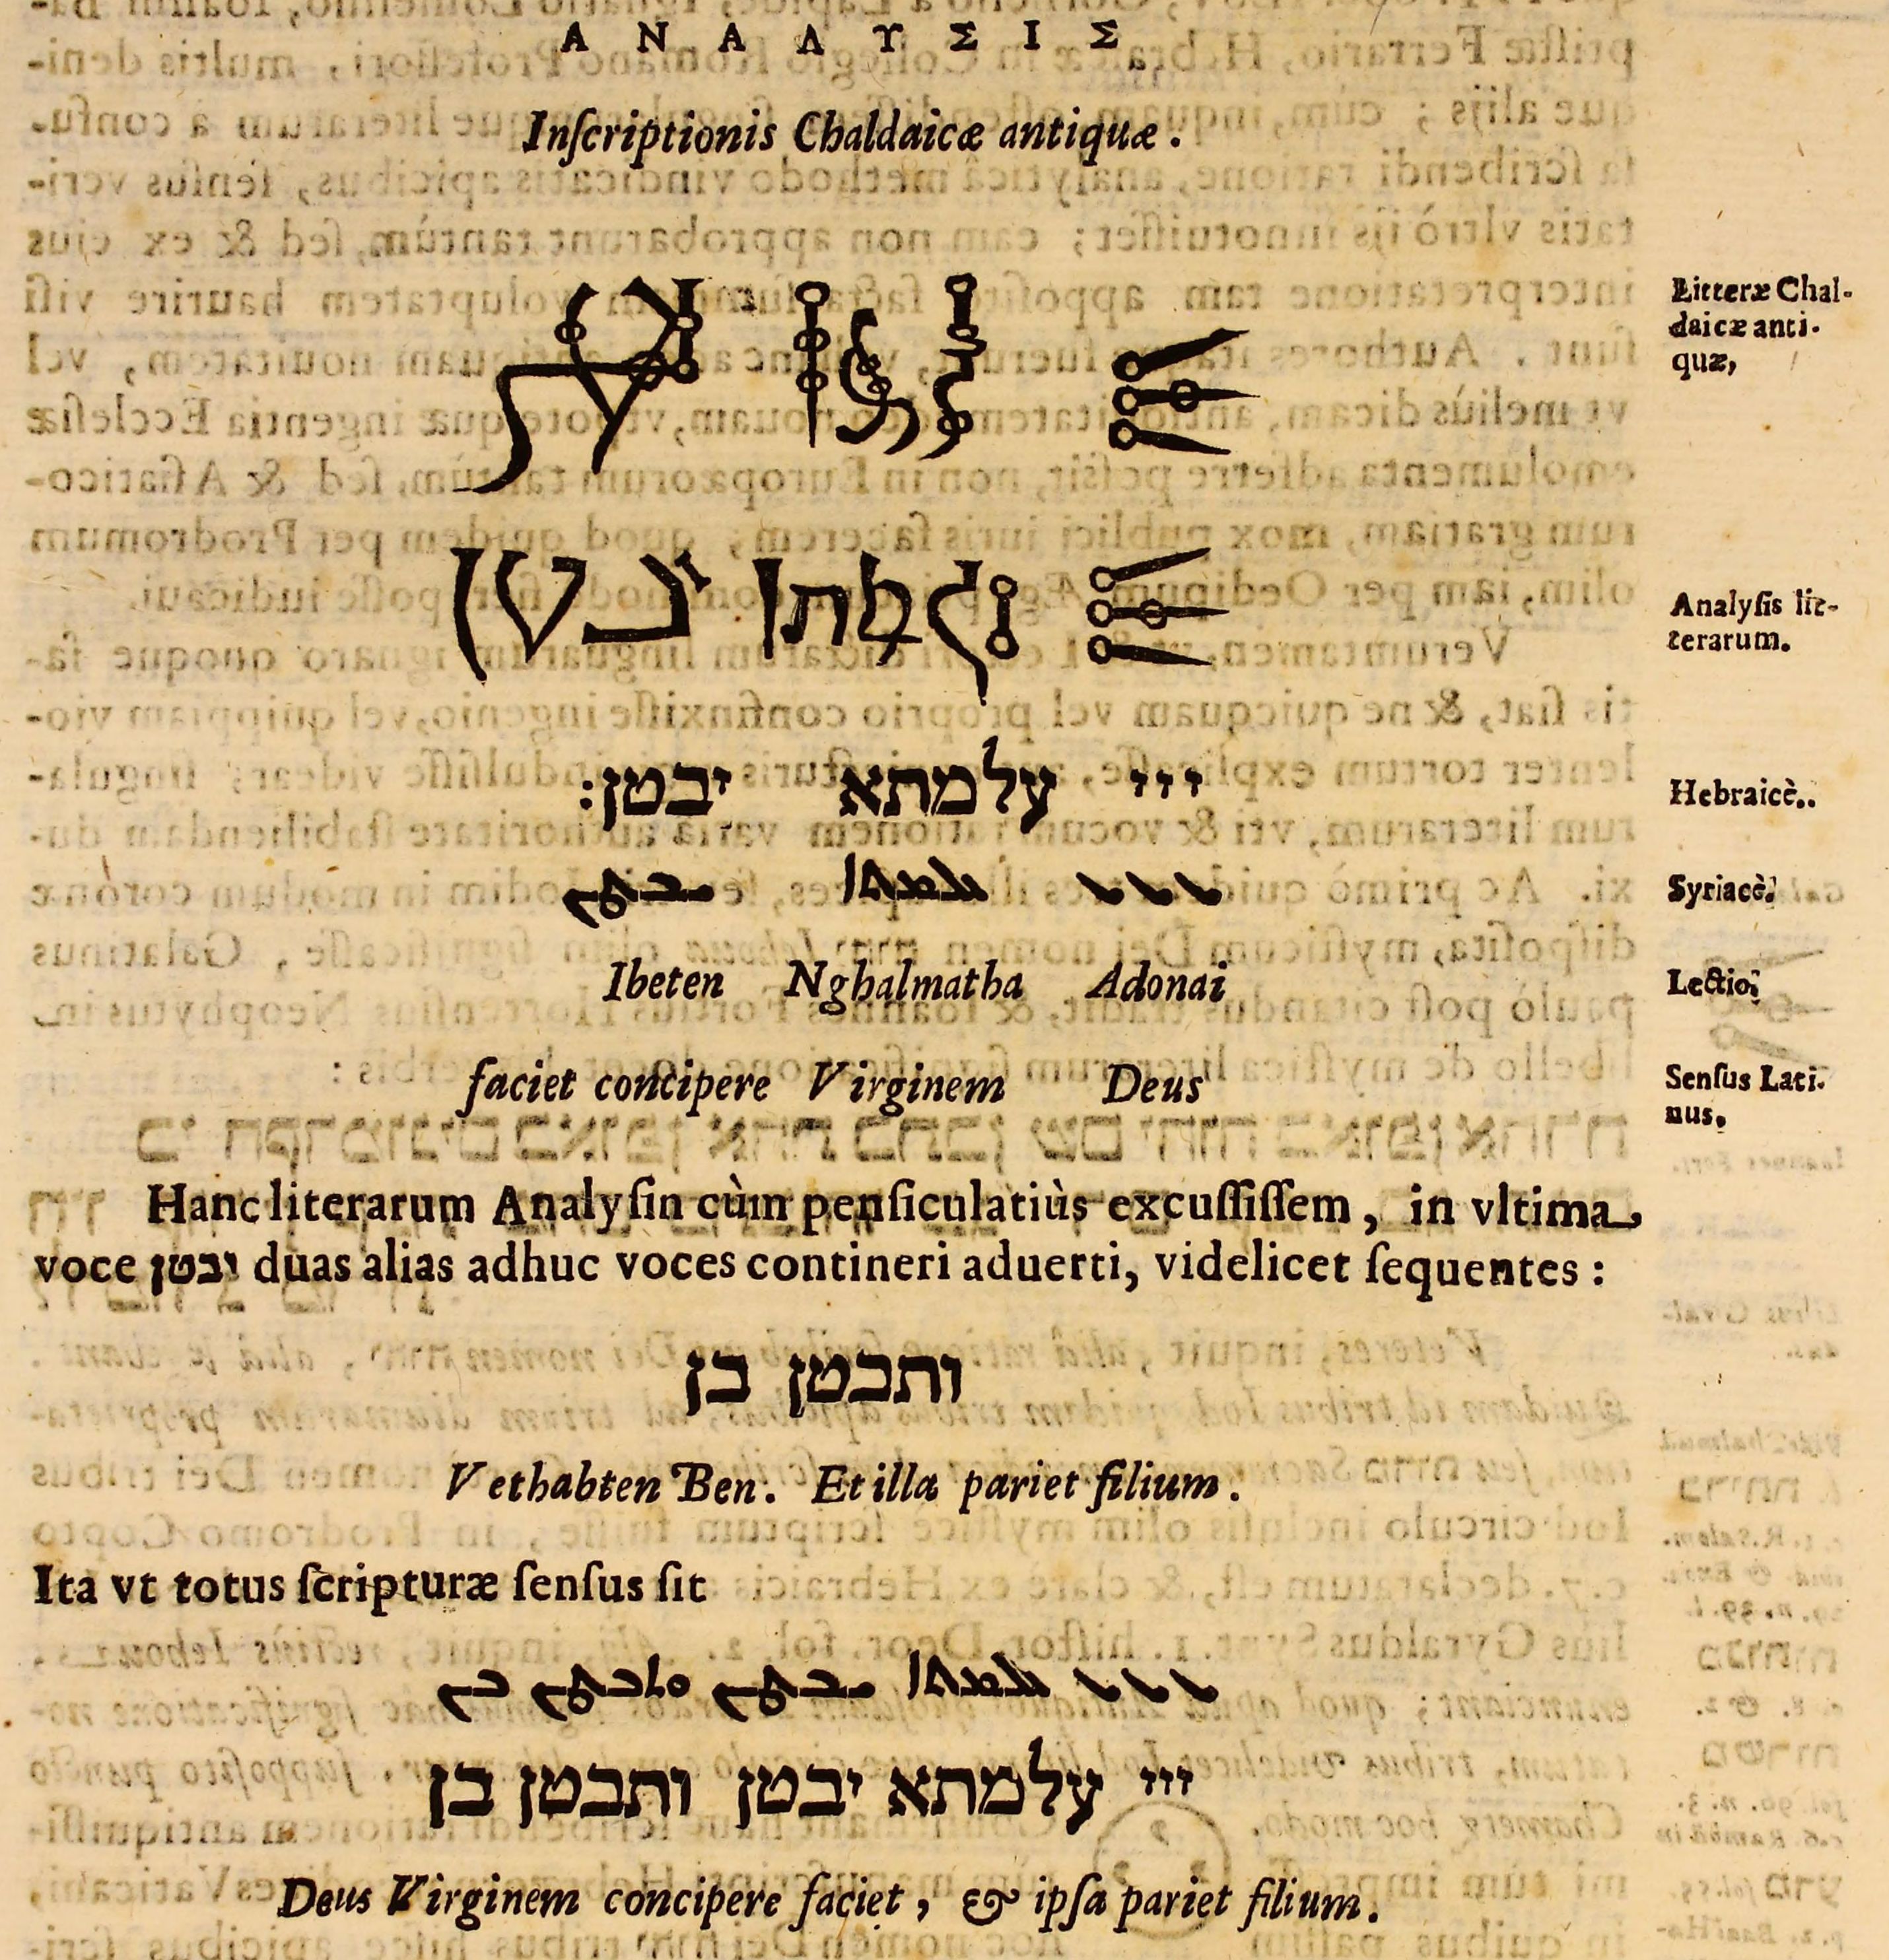 ΑΝΑΛΥΣΙΣ
Inſcriptionis Chaldaicæ antiquæ.
Litteræ Chal-
daicæ anti-
quæ,
Analyſis lit-
terarum.
ייי עלמתא יבטן:
Hebraicè..
ܝܝܝ ܥܠܡܬܐ ܝܒܛܢ
Syriacè.
Ibeten Nghalmatha Adonai
Lectio.
faciet concipere Virginem Deus
Senſus Lati-
nus.
Hanc literarum Analyſin cùm penſiculatiùs excuſſiſſem, in vltima
voce יבטן duas alias adhuc voces contineri aduerti, videlicet ſequentes :
ותבטן בן
Vethabten Ben. Et illa pariet filium.
Ita vt totus ſcripturæ ſenſus ſit
ܝܝܝ ܥܠܡܬܐ ܝܒܛܢ ܘܬܒܛܢ ܒܢ
ייי עלמתא יבטן ותבטן בן
Deus Virginem concipere faciet, & ipſa pariet filium.